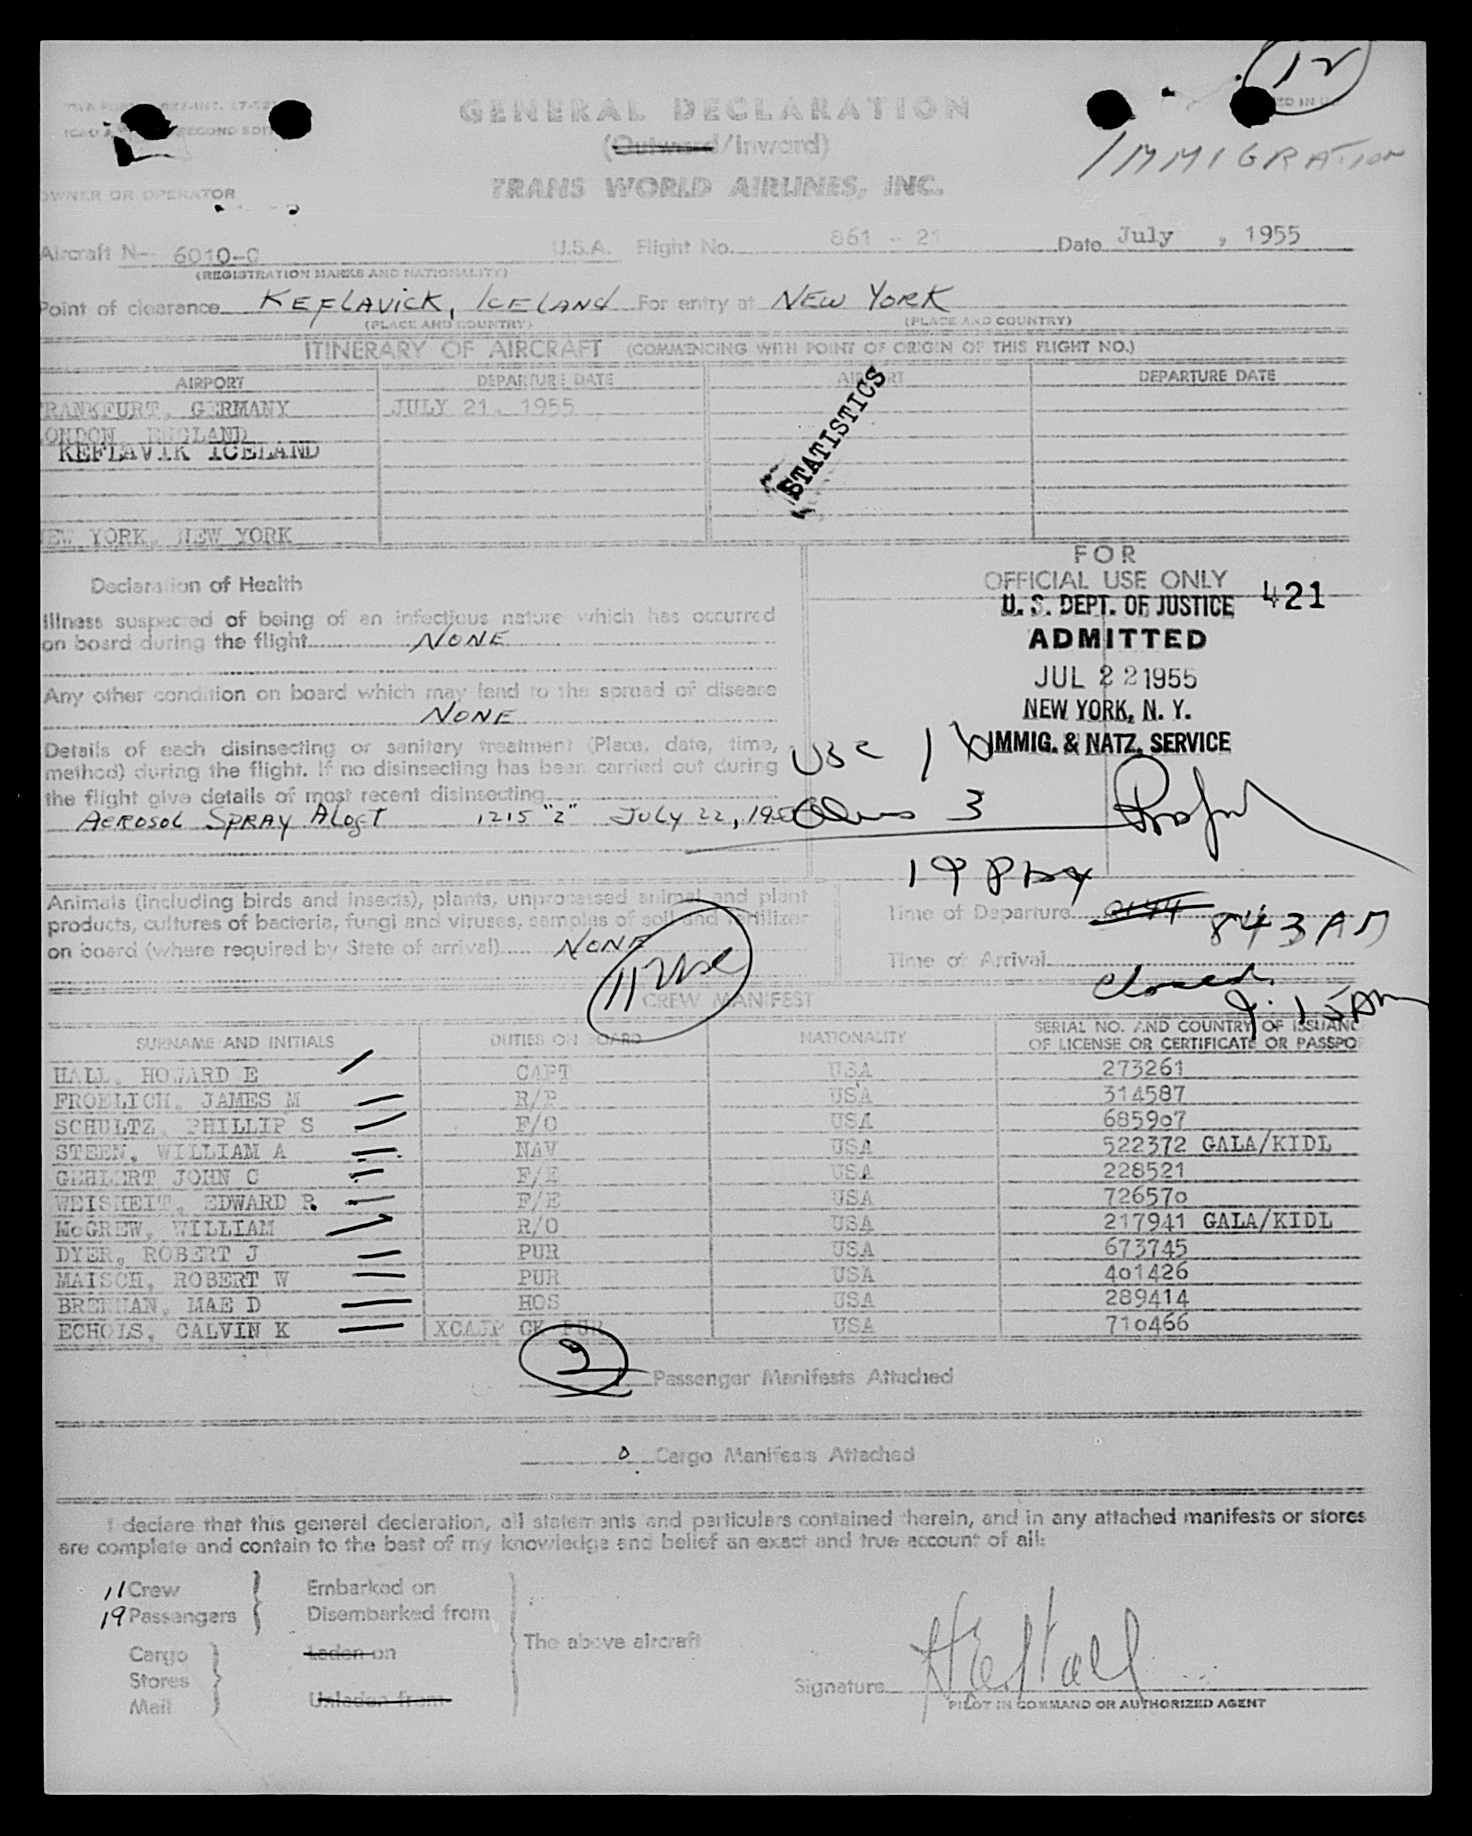 12
GENERAL DECLARATION
(Outward/Inward)
IMMIGRATION
OWNER OR OPERATOR
TRANS WORLD AIRLINES, INC.
Aircraft N-- 6010-C U.S.A. Flight No. 861 - 21 Date July , 1955
(REGISTRATION MARKS AND NATIONALITY)
Point of clearance KEFLAVICK, ICELAND For entry at NEW YORK
(PLACE AND COUNTRY) (PLACE AND COUNTRY)
ITINERARY OF AIRCRAFT (COMMENCING WITH POINT OF ORIGIN OF THIS FLIGHT NO.)
AIRPORT DEPARTURE DATE AIRPORT DEPARTURE DATE
FRANKFURT, GERMANY JULY 21, 1955
LONDON, ENGLAND
KEFLAVIK ICELAND
STATISTICS
NEW YORK, NEW YORK
FOR
OFFICIAL USE ONLY
U. S. DEPT. OF JUSTICE 421
ADMITTED
JUL 22 1955
NEW YORK, N. Y.
IMMIG. & NATZ. SERVICE
Declaration of Health
Illness suspected of being of an infectious nature which has occurred
on board during the flight NONE
Any other condition on board which may lead to the spread of disease
NONE
Details of each disinsecting or sanitary treatment (Place, date, time,
method) during the flight. If no disinsecting has been carried out during
the flight give details of most recent disinsecting
AEROSOL SPRAY ALOFT 1215 "Z" JULY 22, 19
USC 16
Aliens 3
19
Animals (including birds and insects), plants, unprocessed animal and plant
products, cultures of bacteria, fungi and viruses, samples of soil and fertilizer
on board (where required by State of arrival) NONE
Time of Departure 843 AM
Time of Arrival
closed 9:15 AM
11 usc
CREW MANIFEST
SURNAME AND INITIALS DUTIES ON BOARD NATIONALITY SERIAL NO. AND COUNTRY OF ISSUANC
OF LICENSE OR CERTIFICATE OR PASSPO
HALL, HOWARD E CAPT USA 273261
FROELICH, JAMES M R/P USA 314587
SCHULTZ, PHILLIP S F/O USA 685907
STEEN, WILLIAM A NAV USA 522372 GALA/KIDL
GEHLERT JOHN C F/E USA 228521
WEISHEIT, EDWARD R. F/E USA 726570
McGREW, WILLIAM R/O USA 217941 GALA/KIDL
DYER, ROBERT J PUR USA 673745
MAISCH, ROBERT W PUR USA 401426
BRENNAN, MAE D HOS USA 289414
ECHOLS, CALVIN K XCAJP CK PUR USA 710466
2 Passenger Manifests Attached
0 Cargo Manifests Attached
I declare that this general declaration, all statements and particulars contained therein, and in any attached manifests or stores
are complete and contain to the best of my knowledge and belief an exact and true account of all:
11 Crew
19 Passengers
Embarked on
Disembarked from
Cargo
Stores
Mail
Laden on
Unladen from
The above aircraft
Signature H E Hall
PILOT IN COMMAND OR AUTHORIZED AGENT